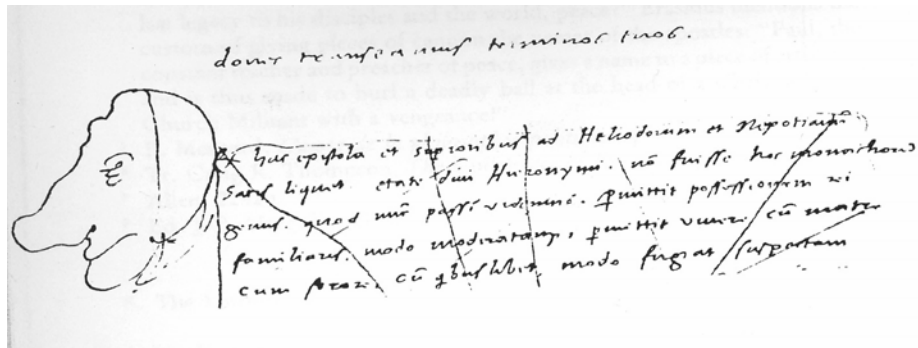 donec transeamus terminos tuos.
hac epistola et superioribus ad Heliodorum et Nepotianū
satis liquet. etate diui Hieronymi. nō fuisse hoc monachorū
genus. quod nūc passī videmus. pmittit possessionem rei
familiaris. modo moderatam, pmittit viuere cū matre
cum sorore, cū qbuslibet, modo fugiat suspectam